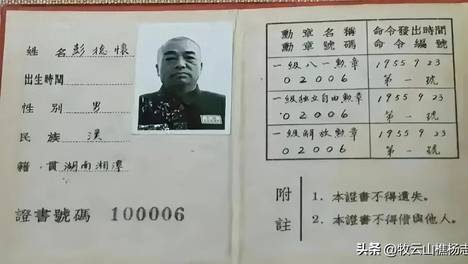 姓名 彭德懷
出生時間
性別 男
民族 漢
籍貫 湖南湘潭
證書號碼 100006
勳章名稱 命令發出時間
勳章號碼 命令編號
一級八一勳章 1955 9 23
02006 第一號
一級独立自由勲章 1955 9 23
02006 第一號
一級解放勲章 1955 9 23
02006 第一號
附註
1. 本證書不得遺失。
2. 本證書不得借與他人。
头条 @牧云山樵杨志